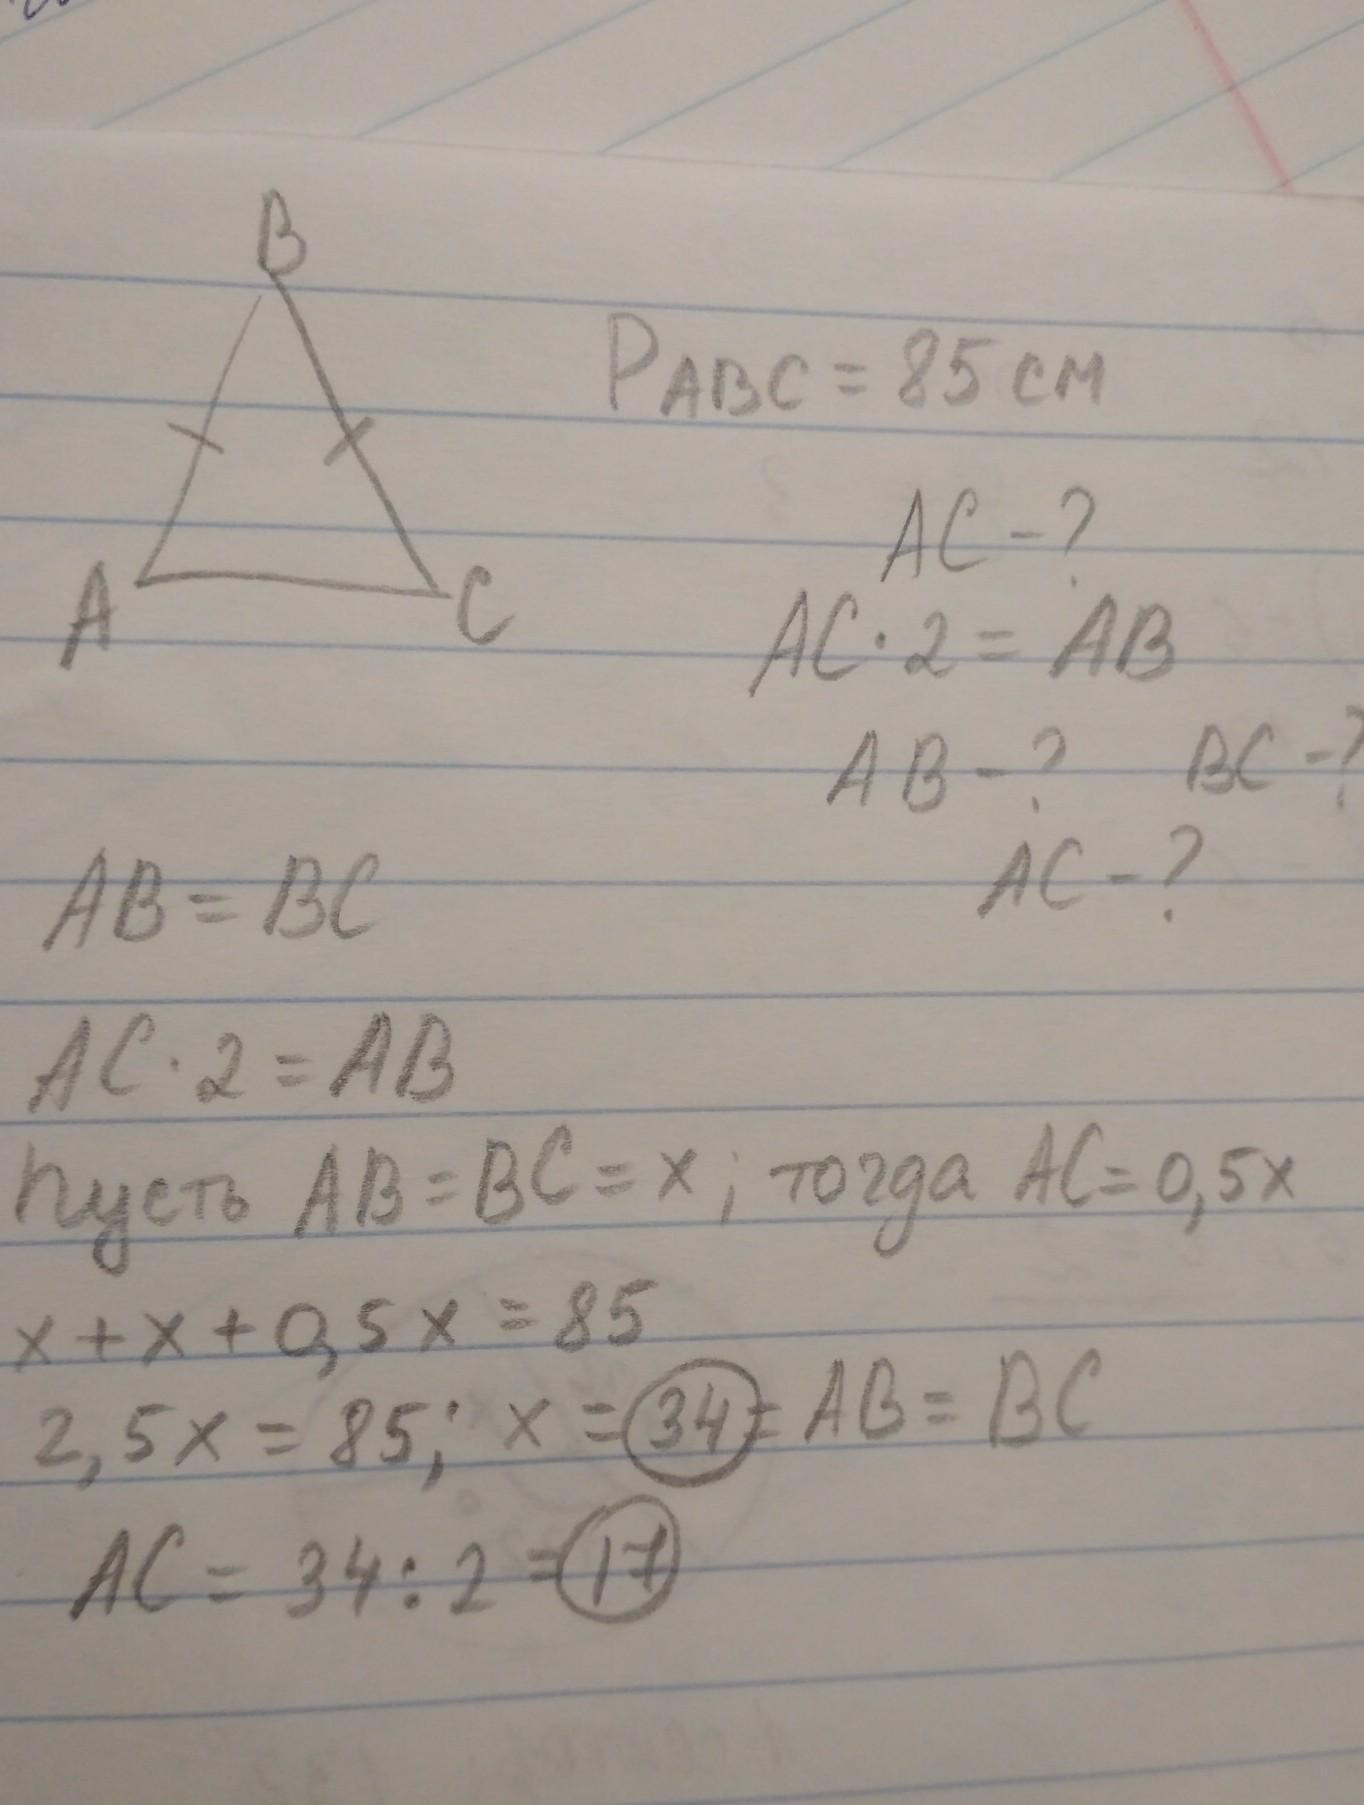 B
A
C
PABC = 85 см
AC - ?
AC · 2 = AB
AB - ? BC - ?
AC - ?
AB = BC
AC · 2 = AB
Пусть AB = BC = x; тогда AC = 0,5x
x + x + 0,5x = 85
2,5x = 85; x = 34 = AB = BC
AC = 34 : 2 = 17